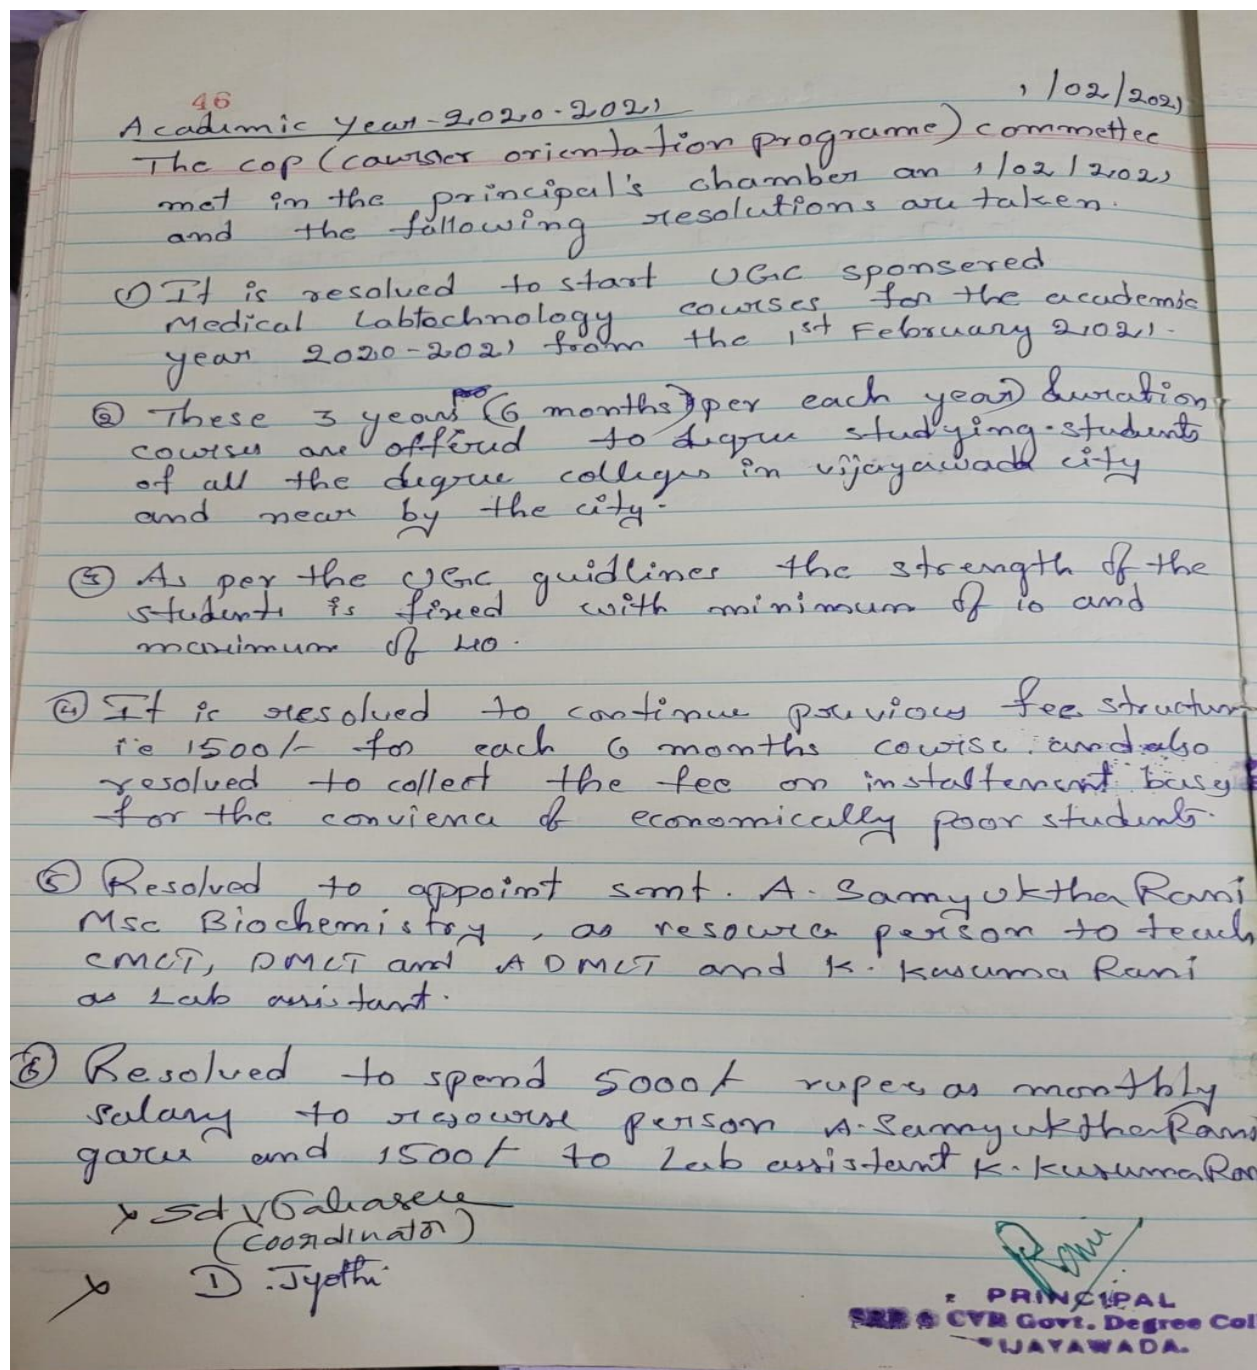 46
1/02/2021
Academic year-2020-2021
The cop (courser orientation programe) commettee
met in the principal's chamber an 1/02/2021
and the following resolutions are taken.
① It is resolved to start UGC sponsered
Medical Labtechnology courses for the academic
year 2020-2021 from the 1st February 2021.
② These 3 years (6 months) per each year) duration
courses are offered to degree studying students
of all the degree colleges in vijayawada city
and near by the city.
③ As per the UGC guidlines the strength of the
students is fixed with minimum of 10 and
maximum of 40.
④ It is resolved to continue previous fee structure
i'e 1500/- for each 6 months course and also
resolved to collect the fee on instaltement basy
for the conviena of economically poor students.
⑤ Resolved to appoint smt. A. Samyuktha Rani
Msc Biochemistry, as resource person to teach
CMLT, DMLT and ADMLT and K. Kusuma Rani
as Lab assistant.
⑥ Resolved to spend 5000/- rupes as monthly
salary to resourse person A. Samyuktha Rani
garu and 1500/- to Lab assistant K. Kusuma Ran
(Coordinator)
D. Jyothi
Rani
PRINCIPAL
SRR & CVR Govt. Degree Col
VIJAYAWADA.